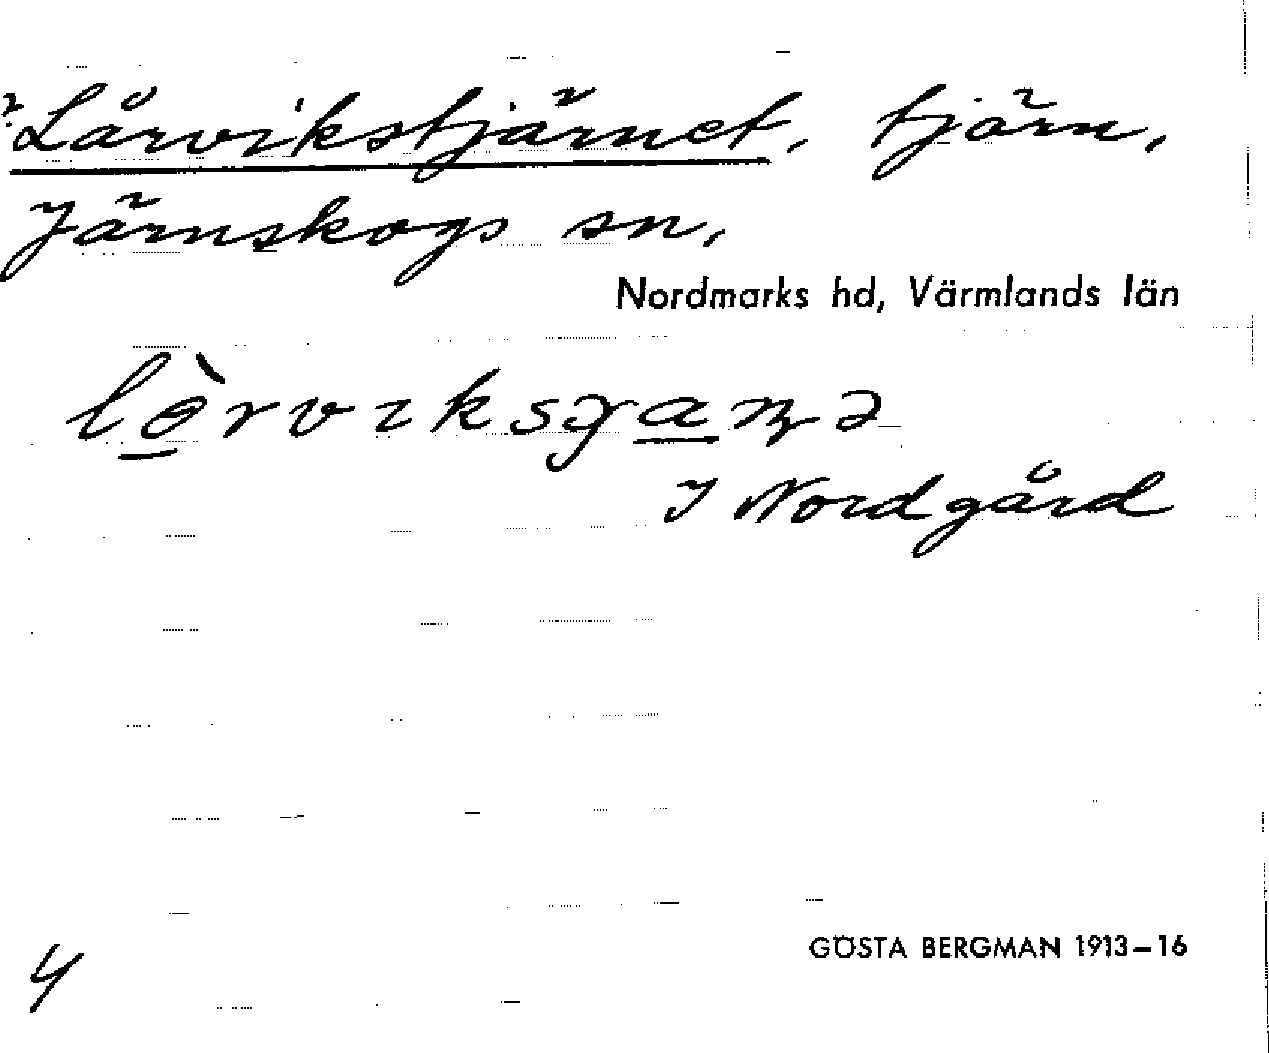 ? Lårvikstjärnet, tjärn,
Järnskogs sn,
Nordmarks hd, Värmlands län
J Nordgård
GÖSTA BERGMAN 1913–16
4